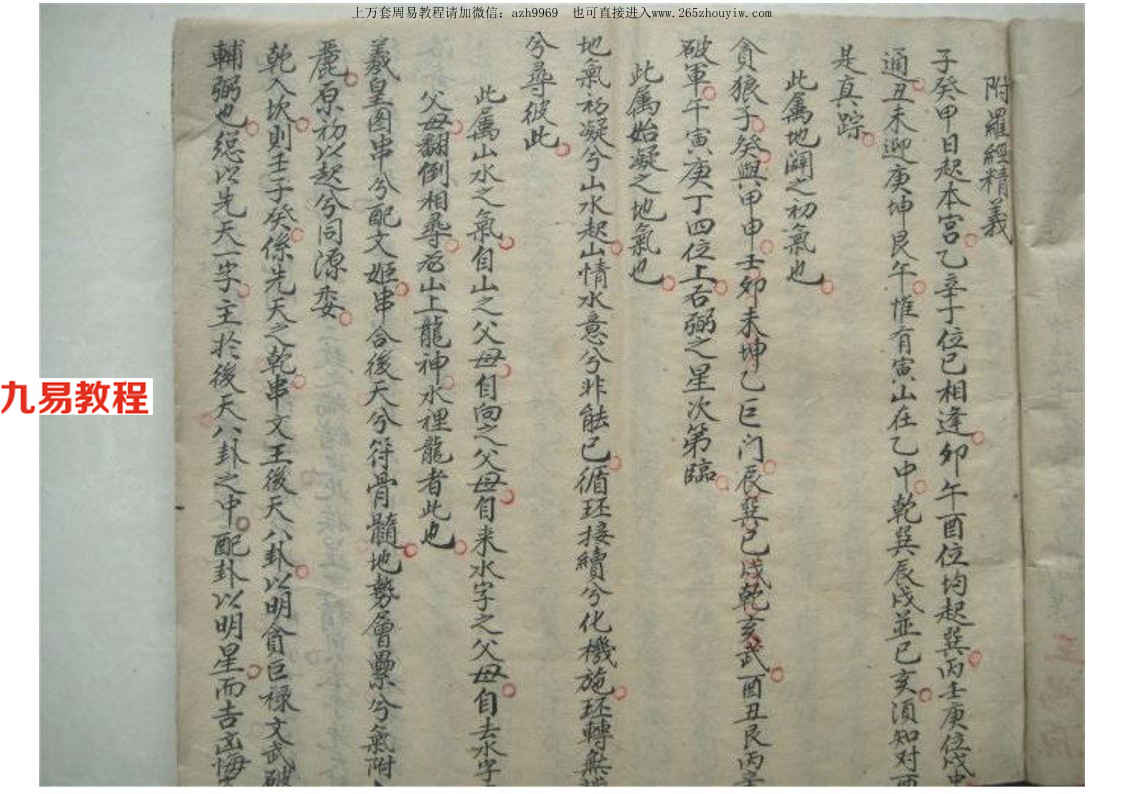 上万套周易教程请加微信：azh9969　也可直接进入www.265zhouyiw.com
九易教程
附羅經精義
子癸甲日起本宮乙辛丁位巳相逢卯午酉位均起巽丙壬庚位戌
通丑未迎庚坤艮午惟有寅山在乙中乾巽辰戌並巳亥須知对
是真踪
此属地闢之初氣也
貪狼子癸與甲申壬卯未坤乙巨门辰巽巳戌乾亥武酉丑艮丙
破軍午寅庚丁四位上右弼之星次第臨
此属始凝之地氣也
地氣初凝兮山水起山情水意兮非能已循环接續兮化機施环轉無
兮尋彼此
此属山水之氣自山之父母自向之父母自来水字之父母自去水字
父母翻倒相尋为山上龍神水裡龍者此也
羲皇图串兮配文姬串合後天兮符骨髓地勢層纍兮氣附
麗原初以起兮同源委
乾入坎則壬子癸係先天之乾串文王後天八卦以明貪巨禄文武破
輔弼也總以先天一字主於後天八卦之中配卦以明星而吉凶悔